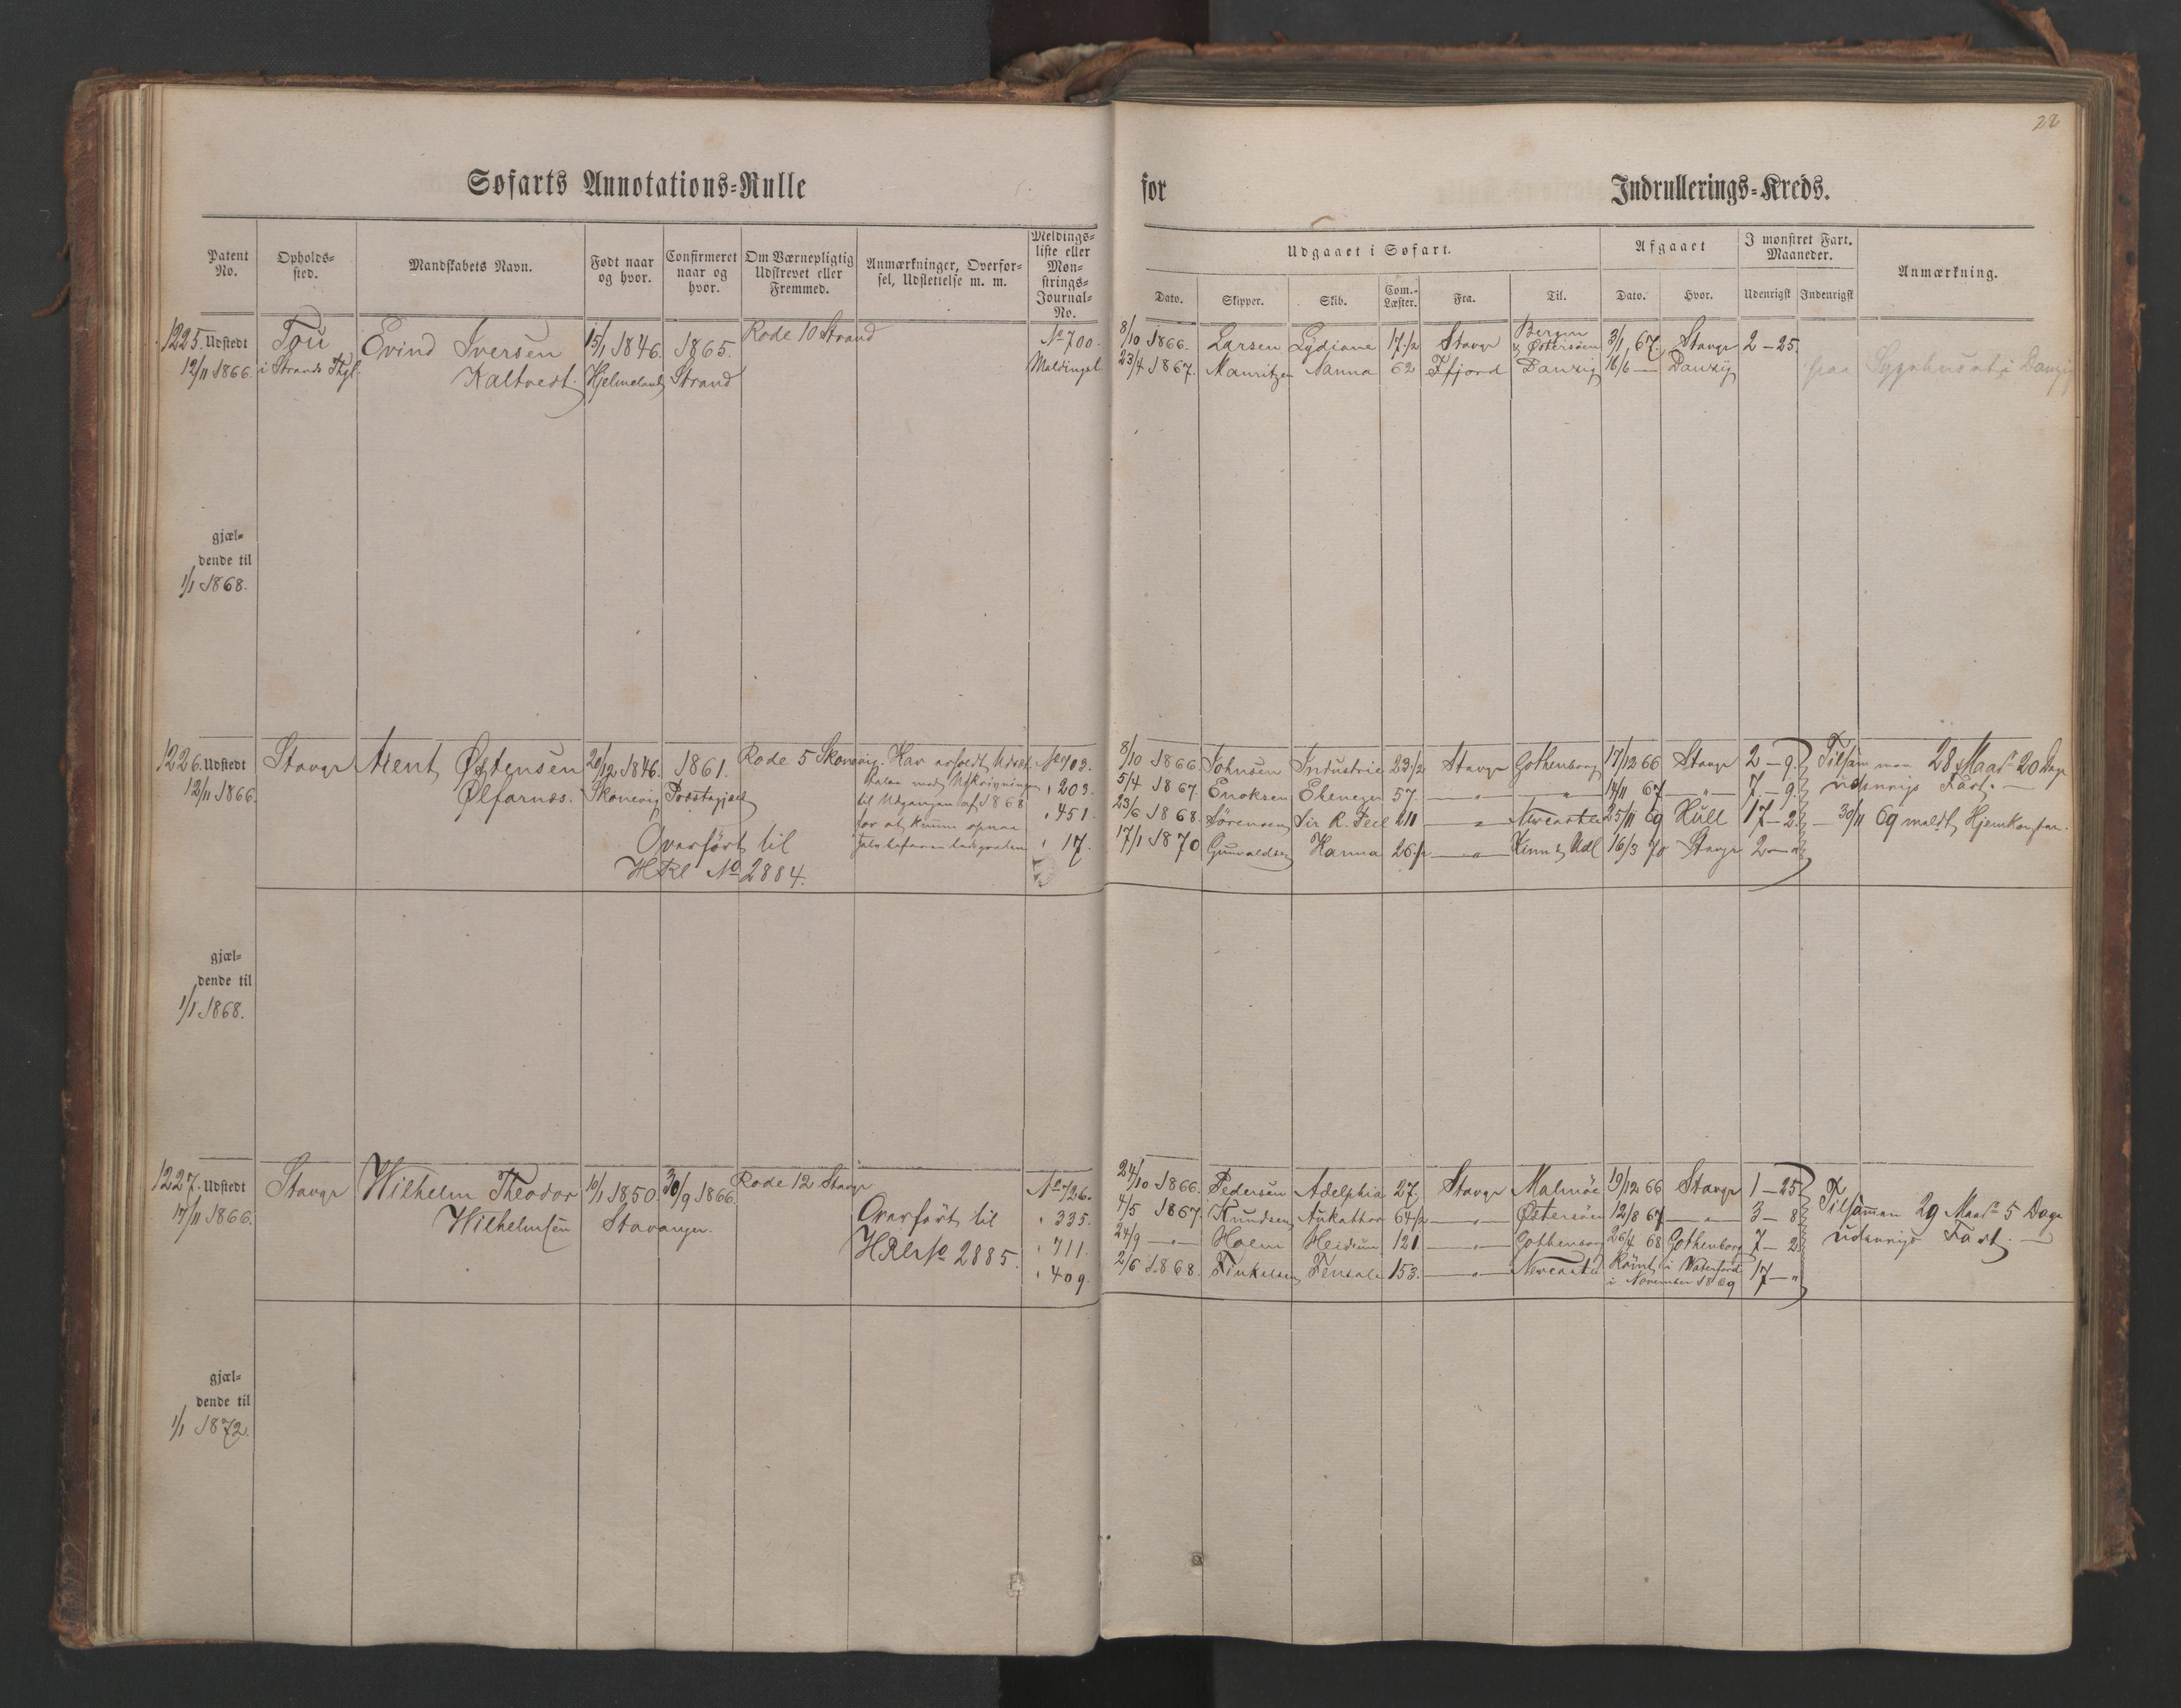 22
Søfarts Annotations=Rulle for Indrullerings=Kreds.
Patent No.
Opholds=sted.
Mandskabets Navn.
Født naar og hvor.
Confirmeret naar og hvor.
Om Værnepligtig Udskrevet eller Fremmed.
Anmærkninger, Overfør=sel, Udslettelse m. m.
Meldings=liste eller Møn=strings=Journal=No.
Udgaaet i Søfart.
Dato. Skipper. Skib. Com.=Læster. Fra. Til.
Afgaaet
Dato. Hvor.
I mønstret Fart. Maaneder.
Udenrigst Indenrigst
Anmærkning.
1225. Udstedt Tou Evind Iversen 15/1 1846. 1865. Rode 10 Strand No 700.
12/11 1866. i Strands Thgl. Kaltvedt. Hjelmeland Strand Meldingsl.
8/10 1866. Larsen Lydiana 17 1/2 Stavgr Bergen & Østersøen 3/1 67. Stavgr 2-25.
23/4 1867. Mauritzen Nanna 62 Ffjord Danzig 16/6 — Danzig paa Sygehuset i Danzig
gjæl=
dende til
1/1 1868.
1226. Udstedt Stavgr Arent Østensen 20/12 1846. 1861. Rode 5 Skonevig. Har No 703.
12/11 1866. Ølfarnæs. Skonevig
til Udgangen af 1868 " 203.
for at kunne opnaa " 451.
" 17.
Overført til
HRl No 2884.
8/10 1866. Johnsen Industrie 23 1/2 Stavgr Gothenborg 17/12 66 Stavgr 2-9. Tilsammen 28 Maadr 20 Dage
5/4 1867. Enoksen Ebeneger 57. — " — — " — 14/11 67 — " — 7-9. udenrigs Fart. —
23/6 1868. Sørensen Sir R. Peel 211 — " — Newcastle 25/11 69 Hull 17-2. — 30/11 69 meldt Hjemkomsten.
17/1 1870 Gunvaldsen Hanna 26 1/2 — " — Kinn & Udl 16/3 70 Stavgr 2-"
gjæl=
dende til
1/1 1868.
1227. Udstedt Stavgr Wilhelm Theodor 10/1 1850. 30/9 1866. Rode 12 Stavgr No 726.
17/11 1866. Wilhelmsen Stavanger. Overført til " 335.
HRl No 2885. " 711.
" 409.
24/10 1866. Pedersen Adelphia 27. Stavgr Malmöe 19/12 66 Stavgr 1-25 Tilsammen 29 Maadr 5 Dage
4/5 1867. Knudsen 64 1/2 — " — Østersøen 12/8 67 — " — 3-8 udenrigs Fart. —
24/9 — " — Holm Heidrun 121 — " — Gothenborg 26/4 68 Gothenborg 7-2.
2/6 1868. 153. — " — Newcastle Rømt i Waterford
i November 1869 17-"
gjæl=
dende til
1/1 1872.